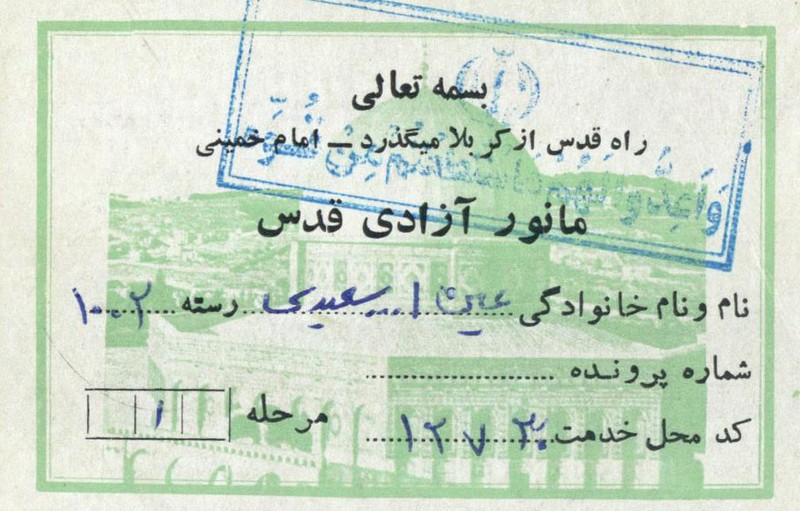 بسمه تعالی
راه قدس از کربلا میگذرد ــ امام خمینی
وَأَعِدُّوا لَهُم مَّا اسْتَطَعْتُم مِّن قُوَّةٍ
مانور آزادی قدس
نام و نام خانوادگی ... سعیدی رسته ۱۰۰۲
شماره پرونده
کد محل خدمت ۱۲۷۳۰
مرحله ۱